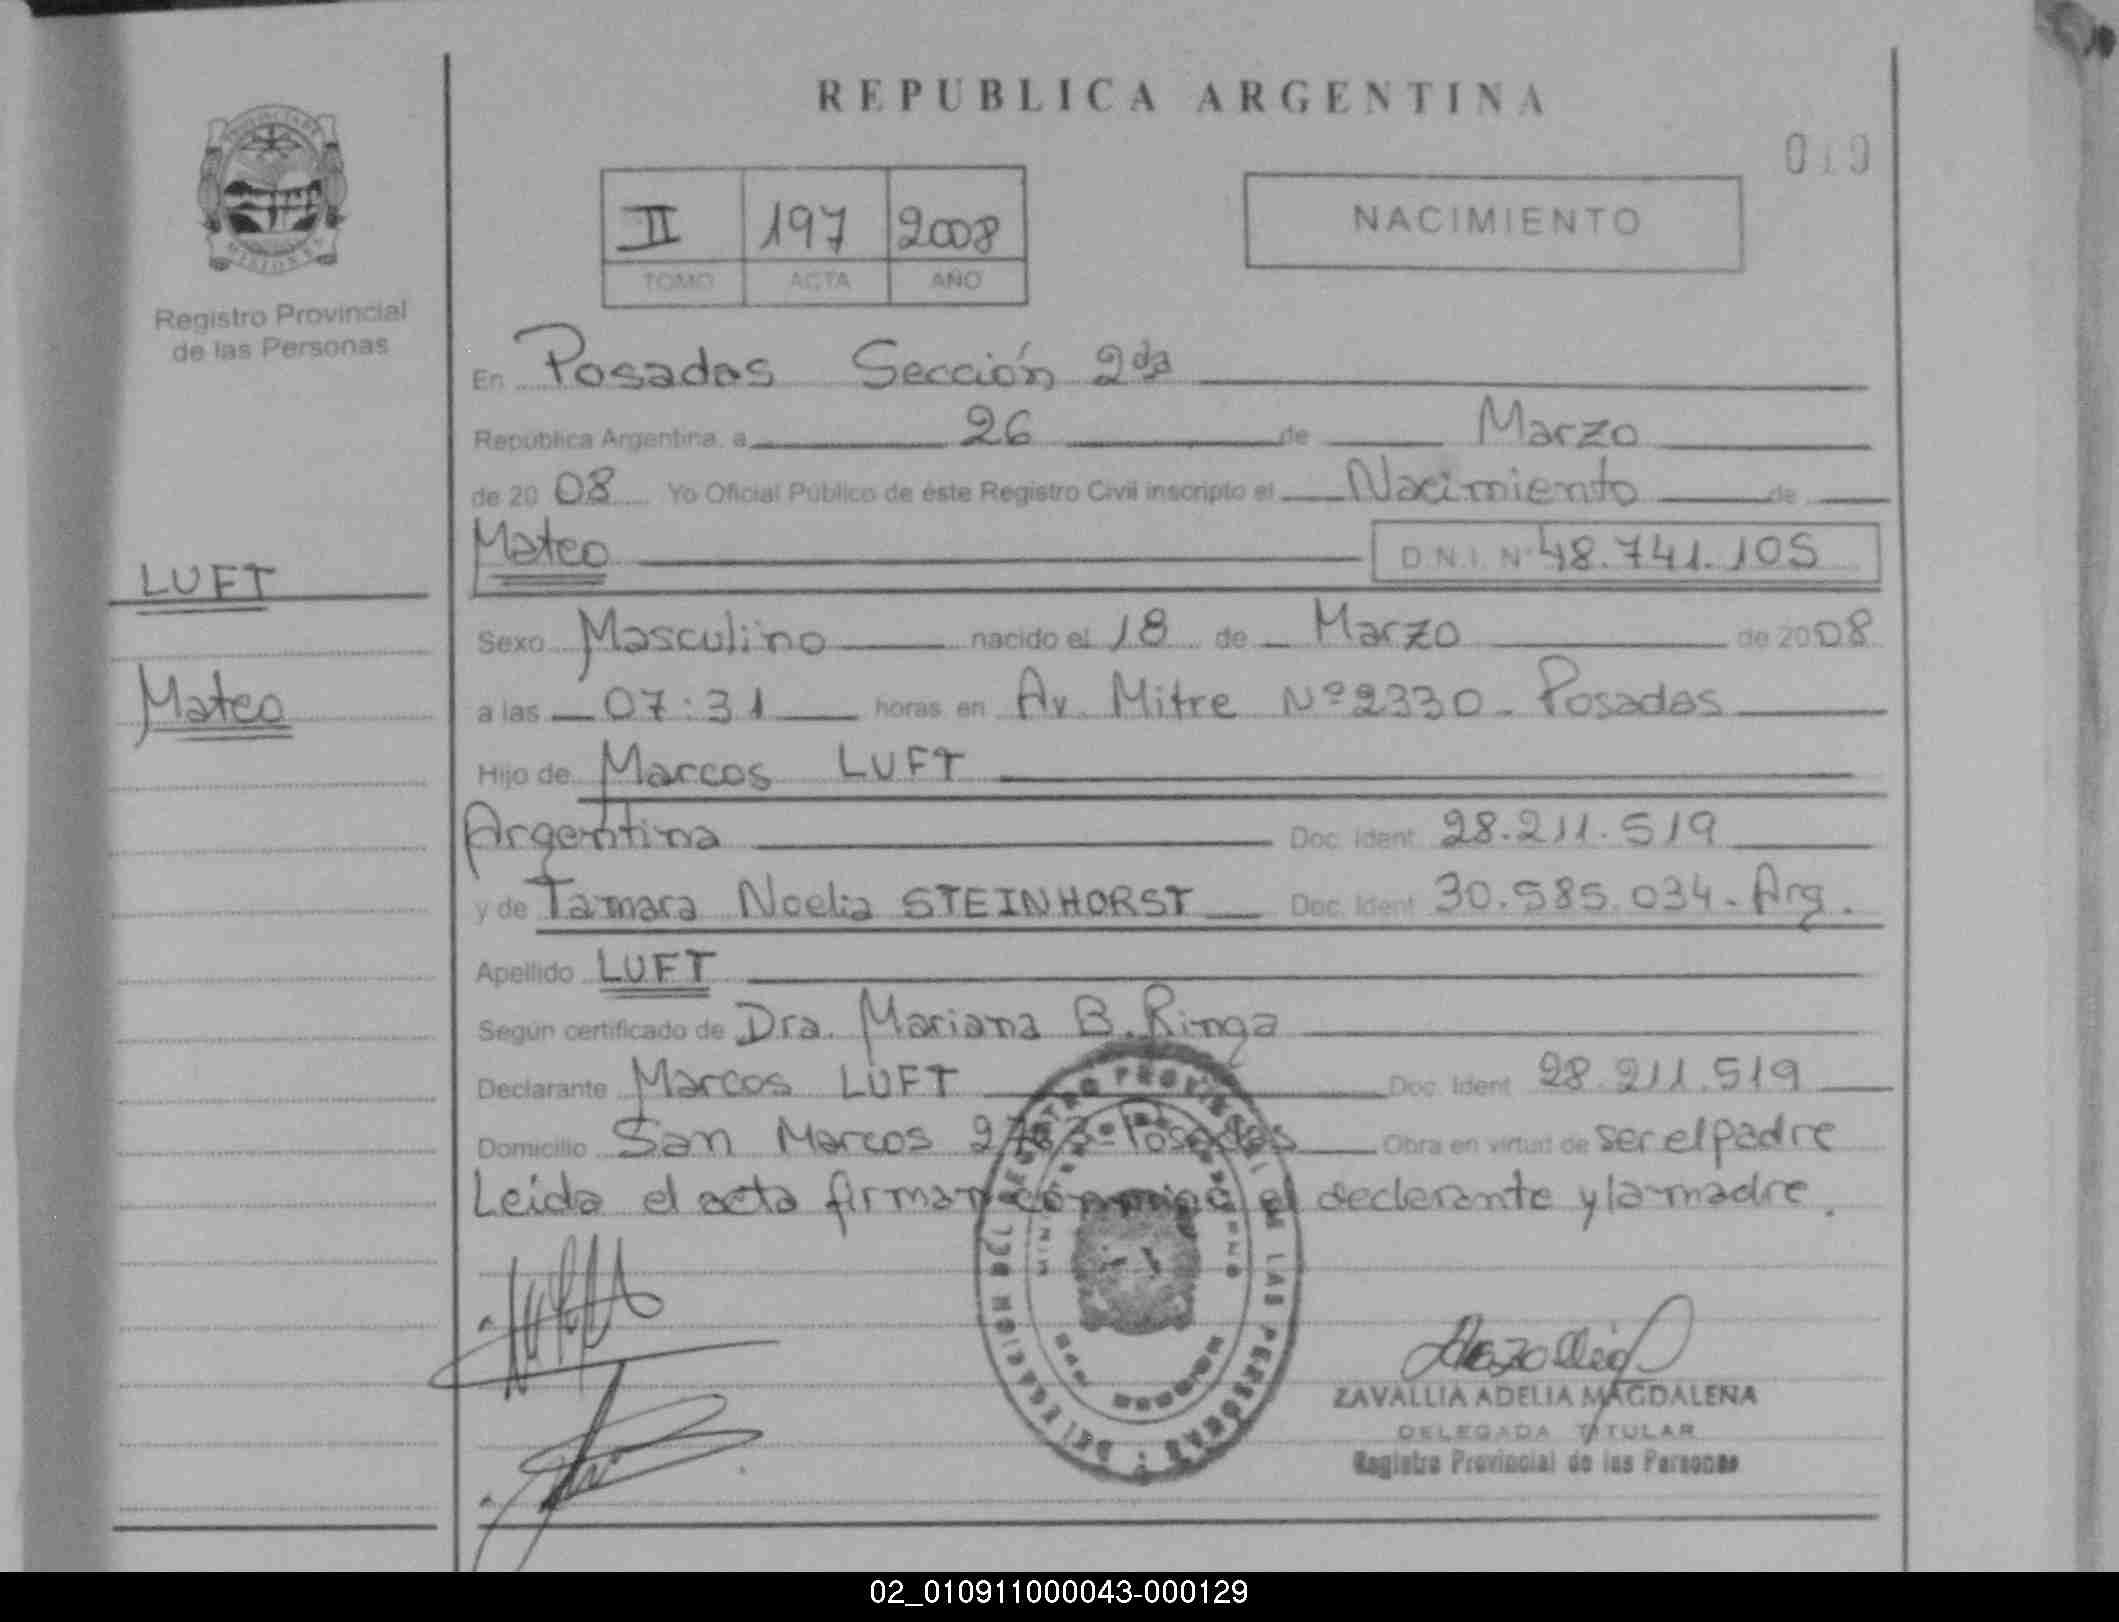 REPUBLICA ARGENTINA
010
II 197 2008
TOMO ACTA AÑO
NACIMIENTO
PROVINCIA DE
MISIONES
Registro Provincial
de las Personas
En Posadas Sección 2da
República Argentina, a 26 de Marzo
de 2008 Yo Oficial Público de éste Registro Civil inscripto el Nacimiento de
Mateo D.N.I. Nº 48.741.105
LUFT
Mateo
Sexo Masculino nacido el 18 de Marzo de 2008
a las 07:31 horas en Av. Mitre Nº 2330 - Posadas
Hijo de Marcos LUFT
Argentina Doc. Ident. 28.211.519
y de Tamara Noelia STEINHORST Doc. Ident. 30.585.034 - Arg.
Apellido LUFT
Según certificado de Dra. Mariana B. Ringa
Declarante Marcos LUFT Doc. Ident. 28.211.519
Domicilio San Marcos - Posadas Obra en virtud de ser el padre
Leida el acta firman conmigo el declarante y la madre.
DELEGACION DEL REGISTRO PROVINCIAL DE LAS PERSONAS
ZAVALLIA ADELIA MAGDALENA
DELEGADA TITULAR
Registro Provincial de las Personas
02_010911000043-000129